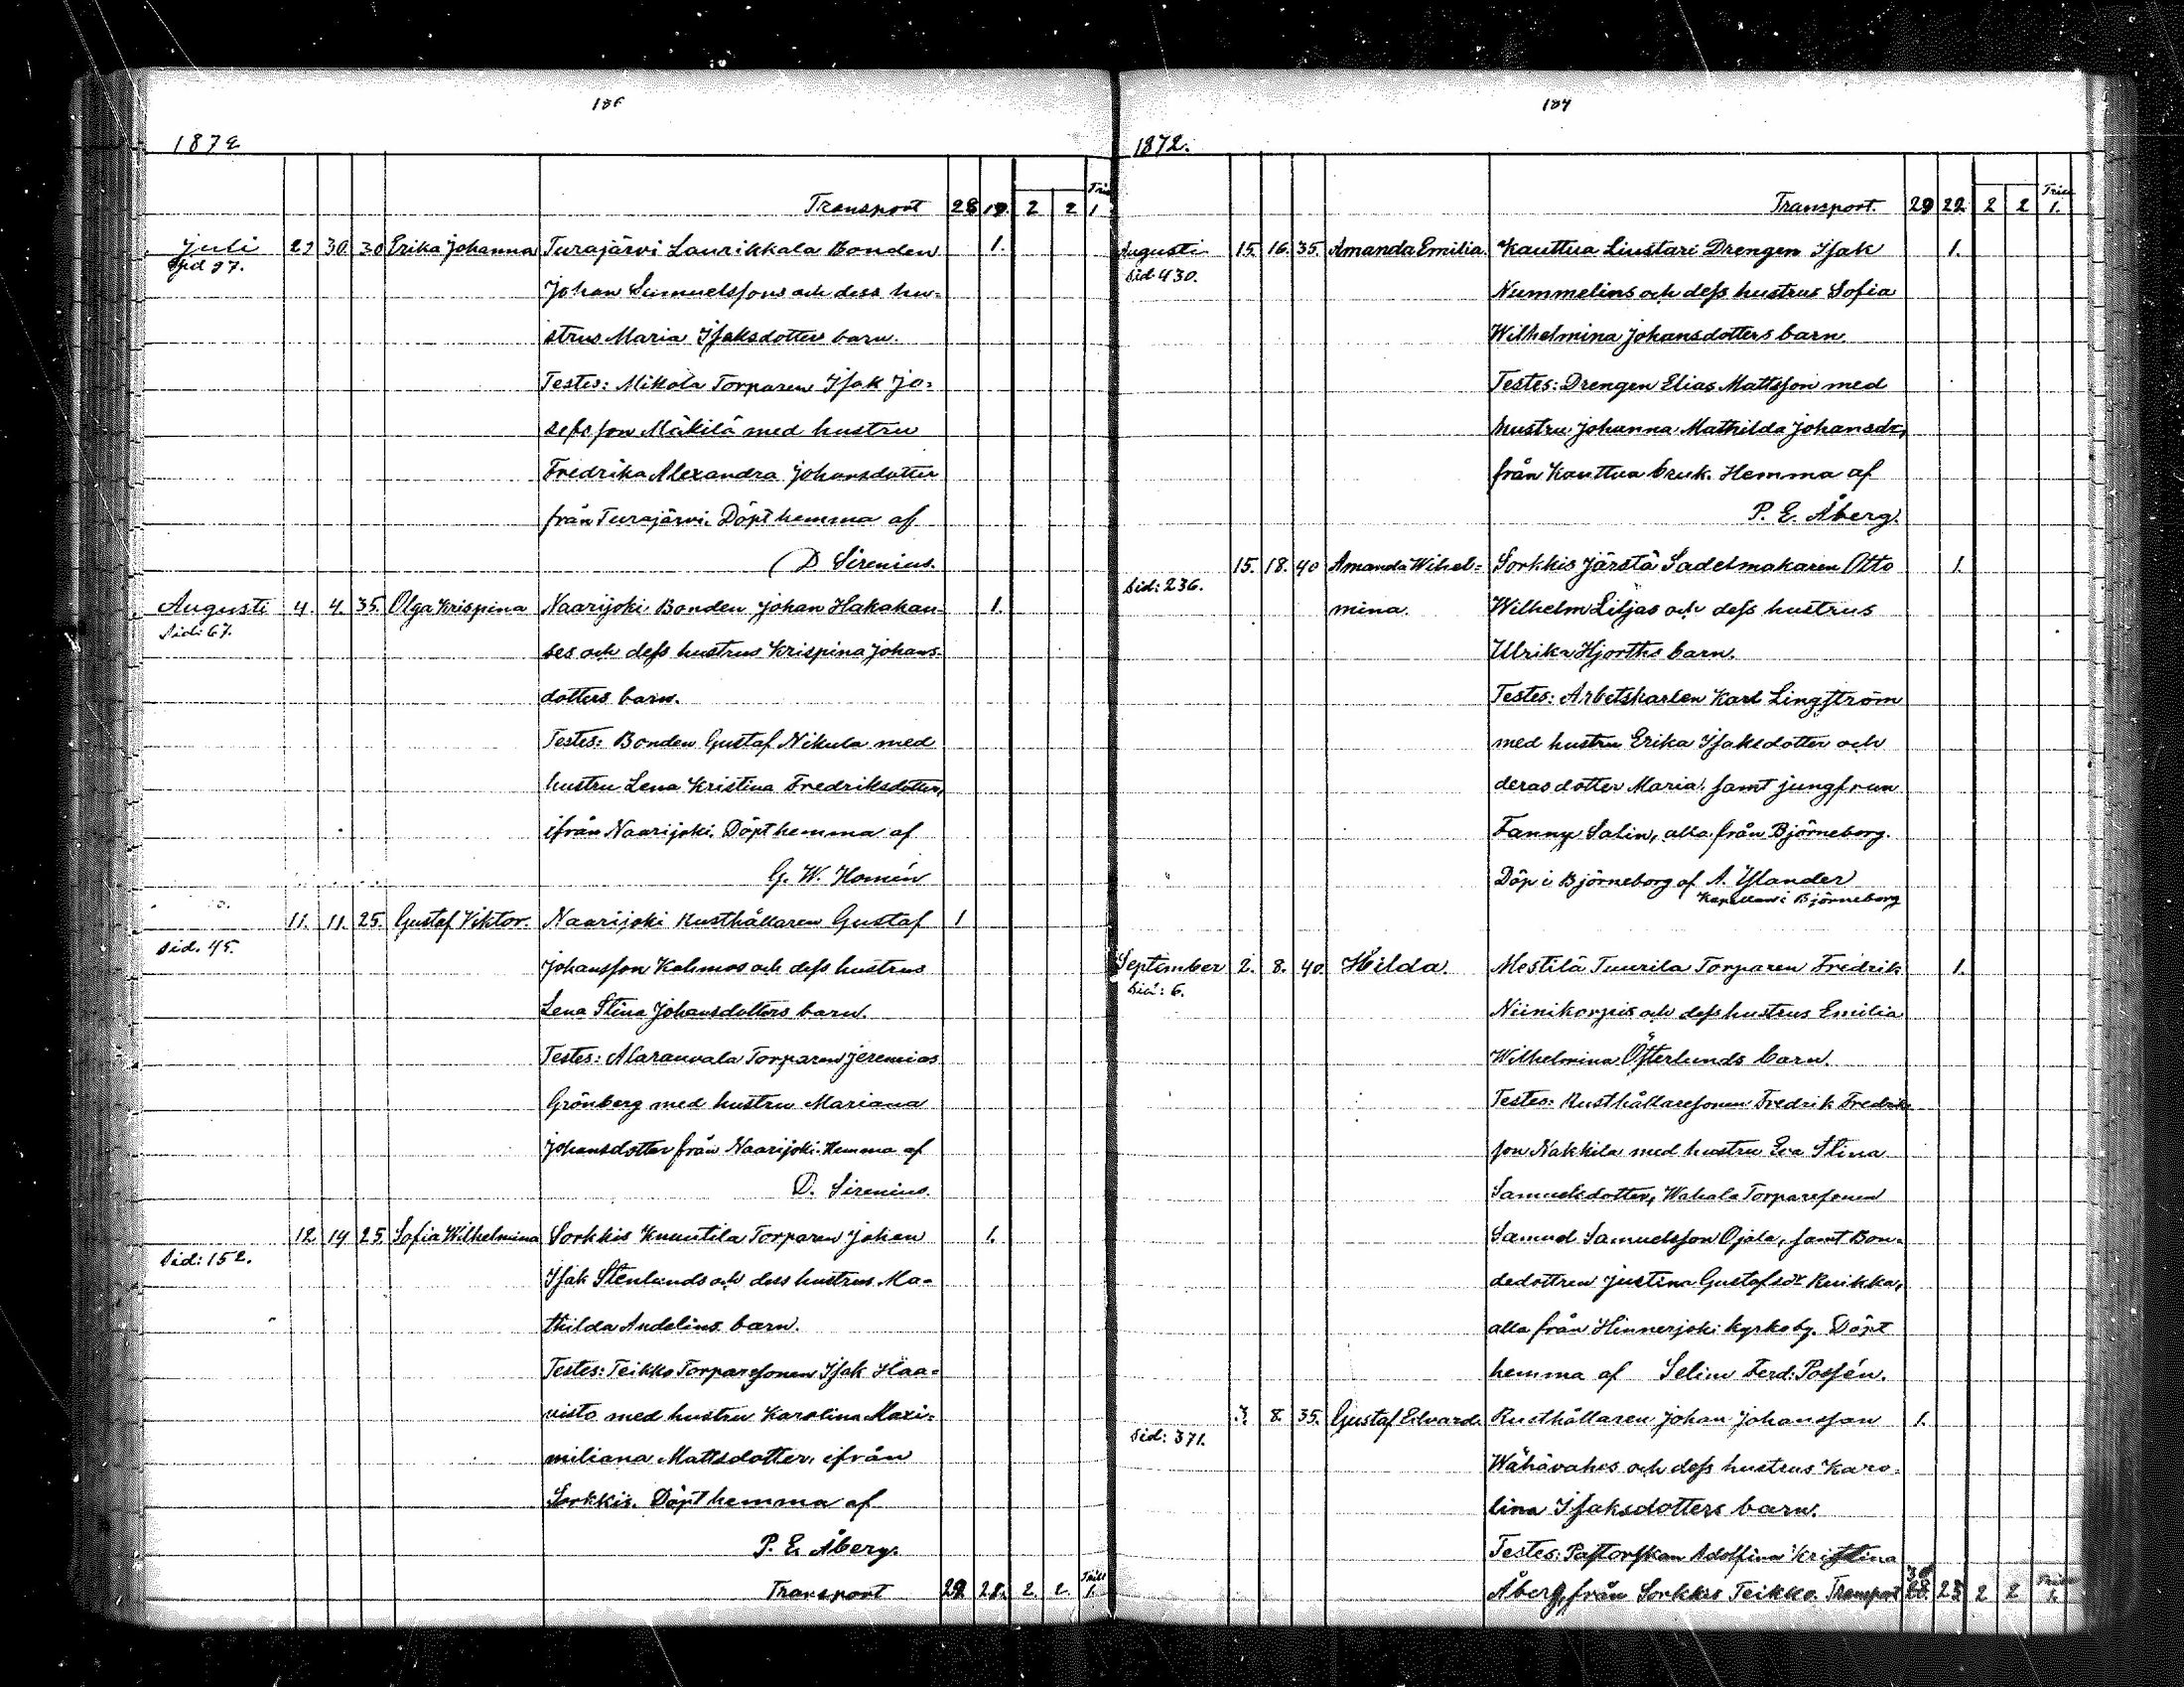 186
1872
Transport 28 19. 2 2 Trie 1.
Juli 27 30. 30 Erika Johanna Turajärvi Laurikkala Bonden 1.
Sid 97. Johan Samuelssons och dess hu-
strus Maria Isaksdotters barn.
Testes: Mikola Torparen Isak Jo-
sefsson Mäkilä med hustru
Fredrika Alexandra Johansdotter
från Turajärvi. Döpt hemma af
D Sirenius.
Augusti 4. 4. 35. Olga Krispina Naarijoki Bonden Johan Hakahan- 1.
Sid: 67. ses och dess hustrus Krispina Johans-
dotters barn.
Testes: Bonden Gustaf Nikula med
hustru Lena Kristina Fredriksdotter,
ifrån Naarijoki. Döpt hemma af
G. W. Homén
11. 11. 25. Gustaf Viktor. Naarijoki Rusthållaren Gustaf 1
Sid. 45. Johansson Kahmos och dess hustrus
Lena Stina Johansdotters barn.
Testes: Alarauvala Torparen Jeremias
Grönberg med hustru Mariana
Johansdotter från Naarijoki. Hemma af
D. Sirenius.
12. 14 25. Sofia Wilhelmina Sorkkis Knuutila Torparen Johan 1.
Sid: 152. Isak Stenlunds och dess hustrus Ma-
thilda Andelins barn.
Testes: Teikko Torparesonen Isak Haa-
visto med hustru Karolina Maxi-
miliana Mattsdotter, ifrån
Sorkkis. Döpt hemma af
P. E. Åberg.
Transport 29 21. 2. 2. Trill 1.
187
1872.
Transport. 29 22. 2 2 Trill 1.
Augusti 15. 16. 35. Amanda Emilia. Kauttua Liustari Drengen Isak 1.
Sid 430. Nummelins och dess hustrus Sofia
Wilhelmina Johansdotters barn
Testes: Drengen Elias Mattsson med
hustru Johanna Mathilda Johansdr,
från Kauttua bruk. Hemma af
P. E. Åberg.
15. 18. 40 Amanda Wihel- Sorkkis Järstä Sadelmakaren Otto 1.
Sid: 236. mina. Wilhelm Liljas och dess hustrus
Ulrika Hjorths barn.
Testes: Arbetskarlen Karl Lingström
med hustru Erika Isaksdotter och
deras dotter Maria, samt jungfrun
Fanny Salin, alla från Björneborg.
Döp i Björneborg af A. Ylander
Kapellan i Björneborg
September 2. 8. 40. Hilda. Mestilä Tuurila Torparen Fredrik 1.
Sid: 6. Niinikorpis och dess hustrus Emilia
Wilhelmina Österlunds barn.
Testes: Rusthållaresonen Fredrik Fredrik
son Nakkila med hustru Eva Stina
Samuelsdotter, Wahala Torparesonen
Samuel Samuelsson Ojala, samt Bon-
dedottren Justina Gustafsdr Kuikka,
alla från Hinnerjoki kyrkoby. Döpt
hemma af Selim Ferd: Possén.
3. 8. 35. Gustaf Edvard. Rusthållaren Johan Johansson 1.
Sid: 371. Wähävahes och dess hustrus Karo-
lina Isaksdotters barn.
Testes: Pastorskan Adolfina Kristina
Åberg, från Sorkkis Teikko. Transport 30 23 2 2 1.